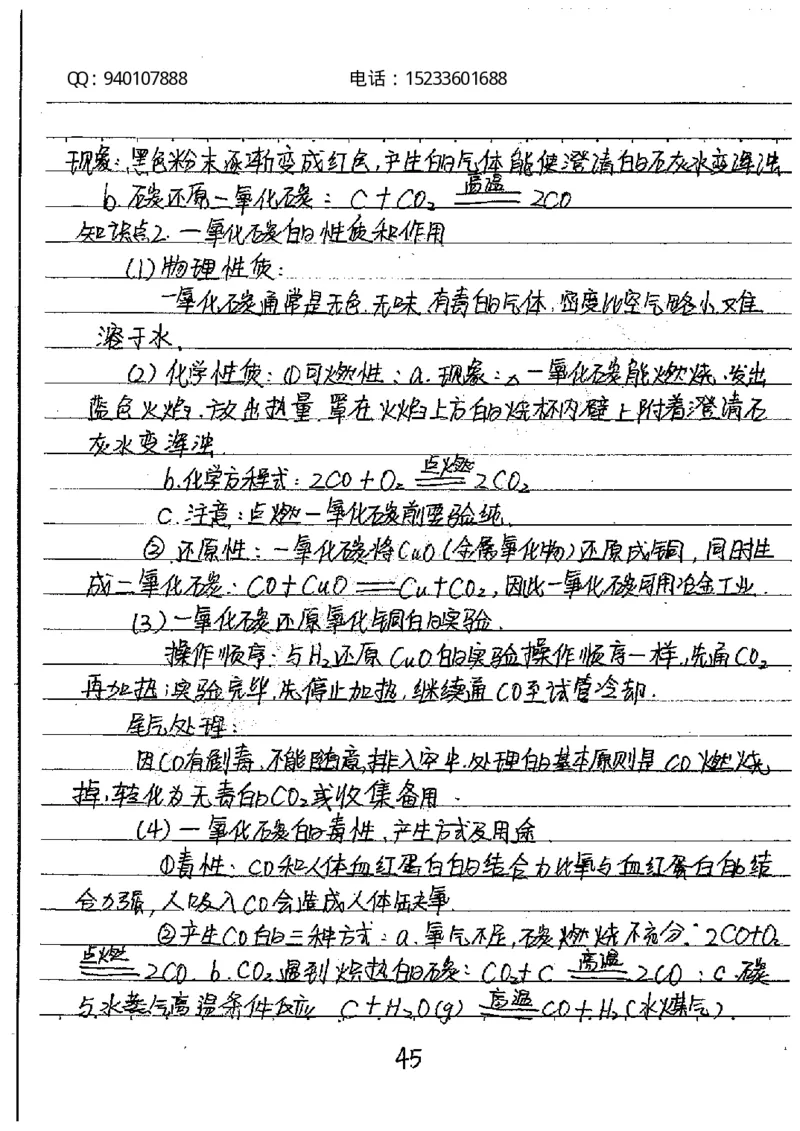 QQ：940107888 电话：15233601688
现象：黑色粉末逐渐变成红色，产生的气体能使澄清的石灰水变浑浊
b. 碳还原二氧化碳：C + CO₂ 高温══ 2CO
知识点2. 一氧化碳的性质和作用
(1) 物理性质：
一氧化碳通常是无色、无味、有毒的气体，密度比空气略小，难
溶于水。
(2) 化学性质：①可燃性：a. 现象：一氧化碳能燃烧，发出
蓝色火焰，放出热量，罩在火焰上方的烧杯内壁上附着澄清石
灰水变浑浊
b. 化学方程式：2CO + O₂ 点燃══ 2CO₂
c. 注意：点燃一氧化碳前要验纯。
② 还原性：一氧化碳将CuO（金属氧化物）还原成铜，同时生
成二氧化碳：CO + CuO ══ Cu + CO₂，因此一氧化碳可用冶金工业.
(3) 一氧化碳还原氧化铜的实验.
操作顺序：与H₂还原CuO的实验操作顺序一样，先通CO₂
再加热；实验完毕，先停止加热，继续通CO至试管冷却.
尾气处理：
因CO有剧毒，不能随意排入空中，处理的基本原则是CO燃烧
掉，转化为无毒的CO₂或收集备用.
(4) 一氧化碳的毒性、产生方式及用途
①毒性：CO和人体血红蛋白的结合力比氧与血红蛋白的结
合力强，人吸入CO会造成人体缺氧.
②产生CO的三种方式：a. 氧气不足，碳燃烧不充分：2CO+O₂
点燃══ 2CO b. CO₂遇到炽热的碳：CO₂+C 高温══ 2CO；c. 碳
与水蒸气高温条件反应 C+H₂O(g) 高温══ CO+H₂(水煤气).
45